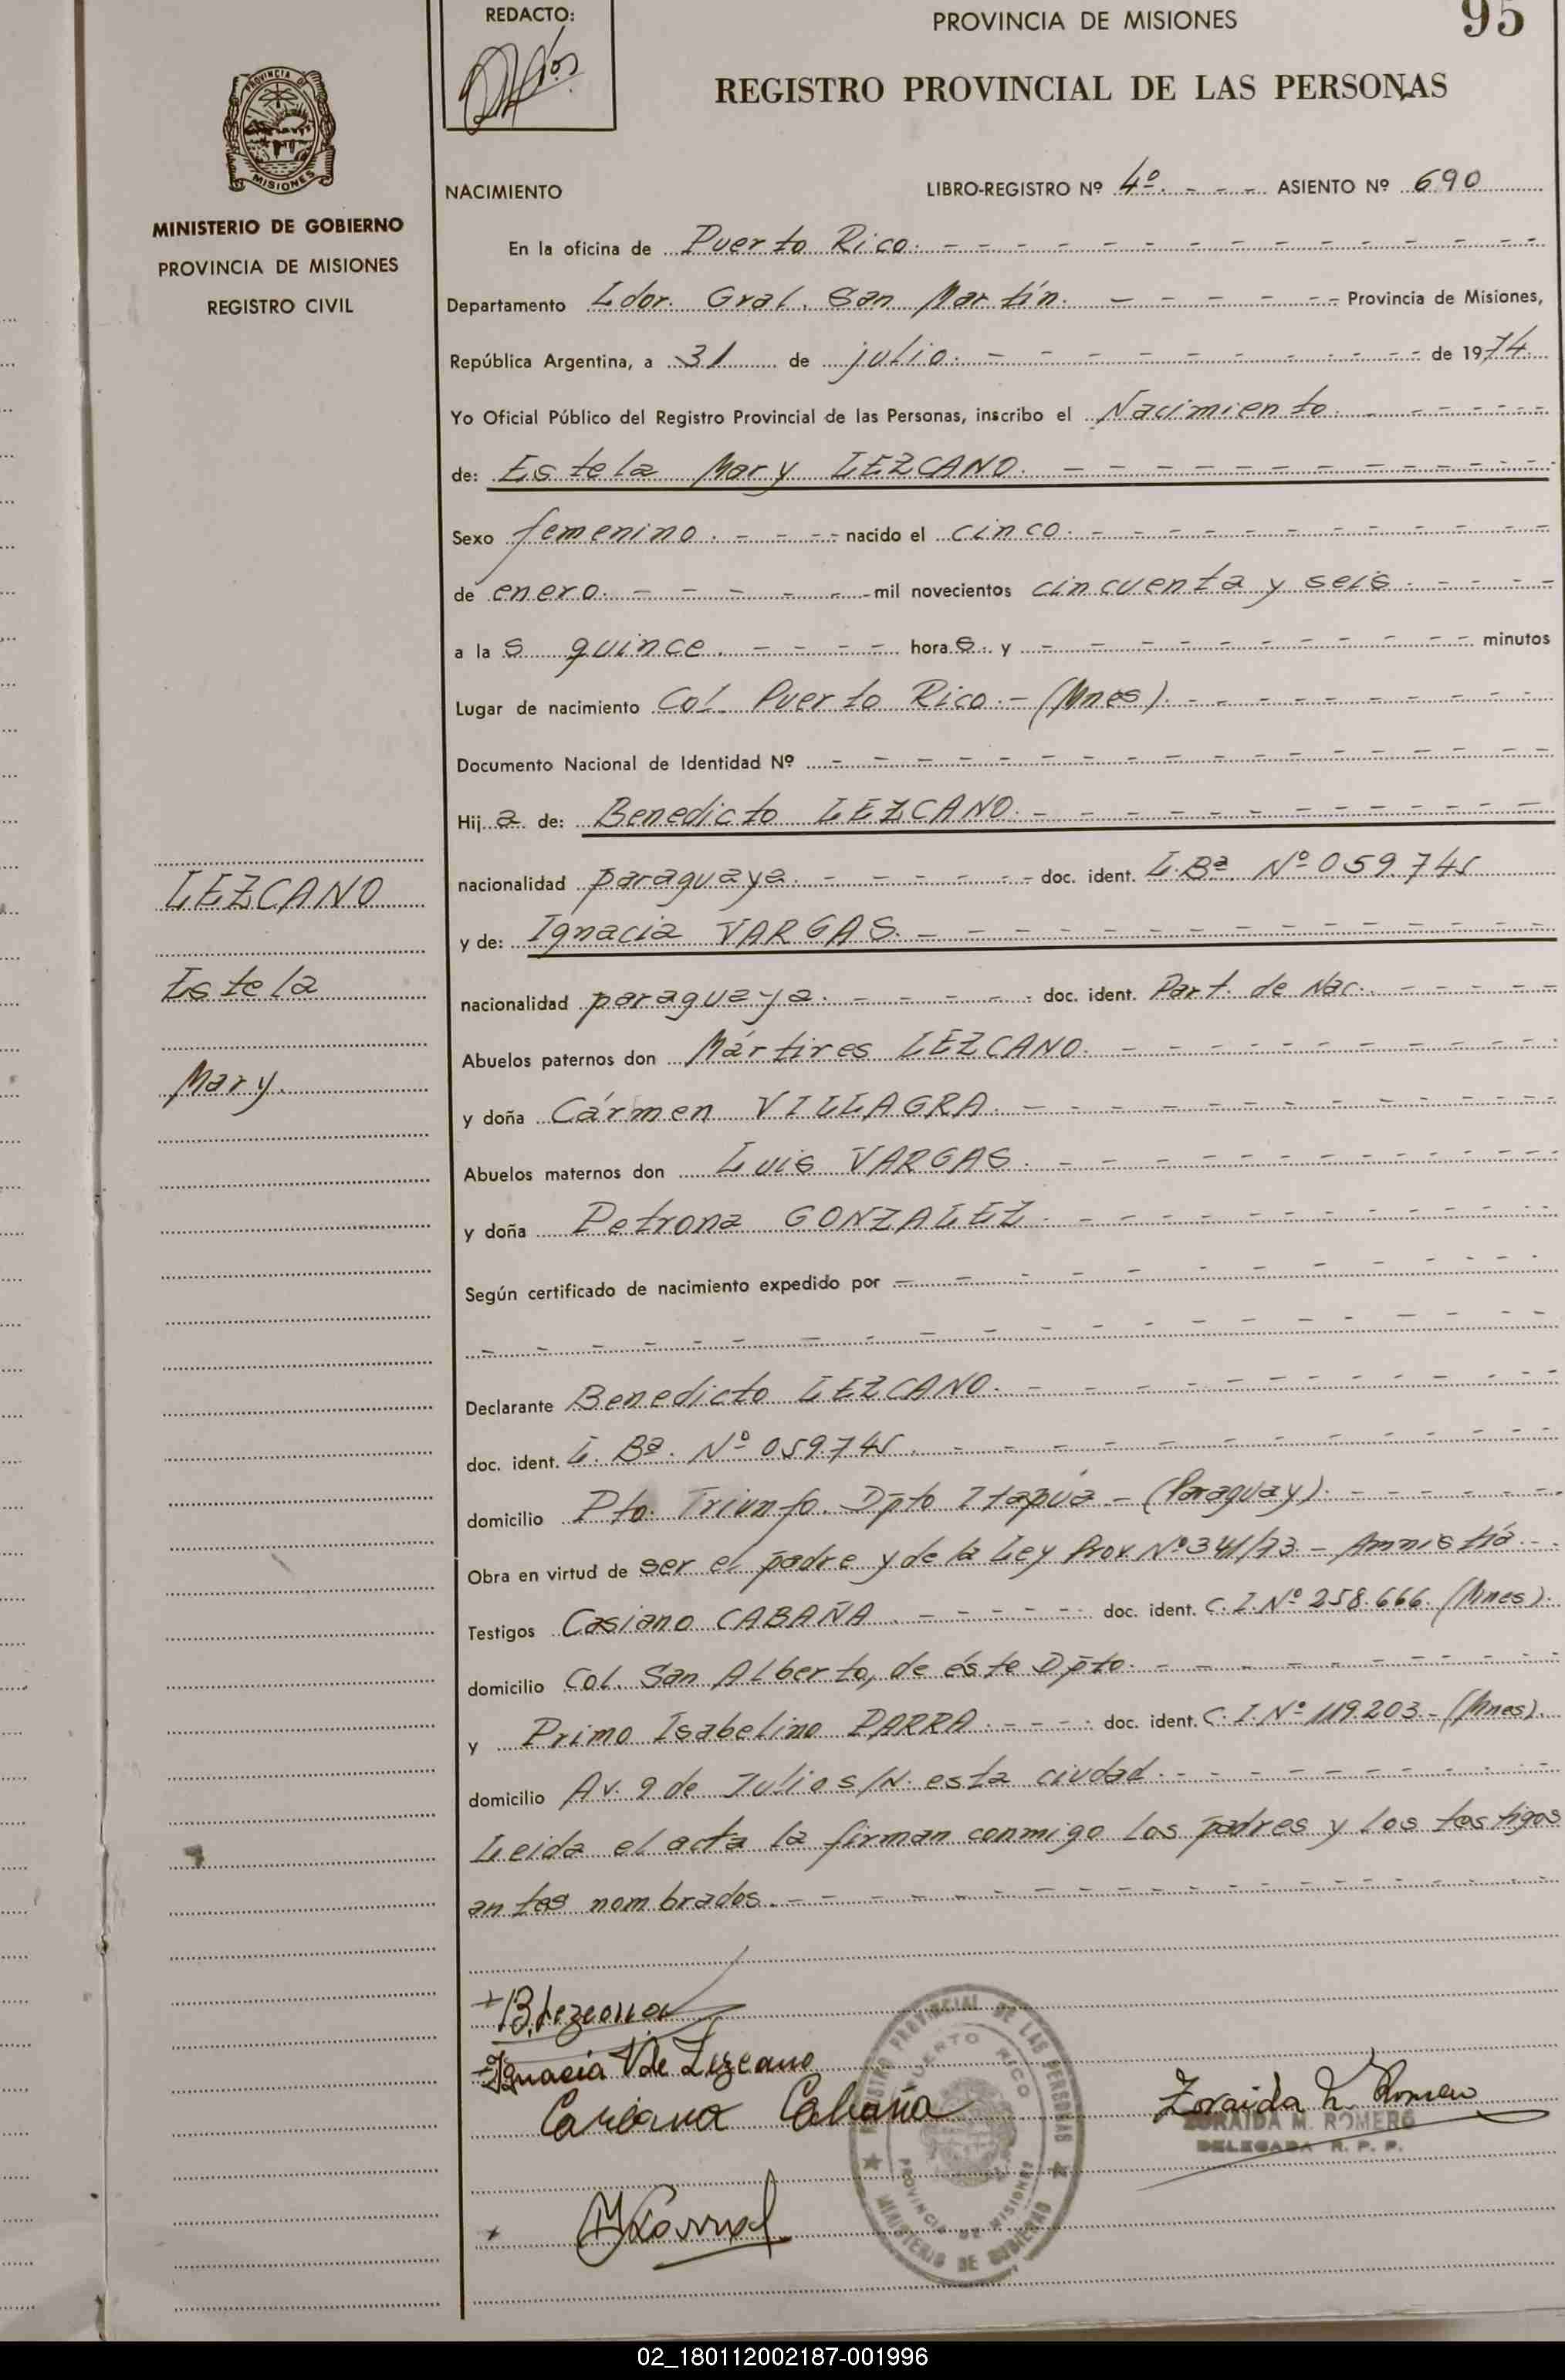 REDACTO:
PROVINCIA DE MISIONES
95
REGISTRO PROVINCIAL DE LAS PERSONAS
PROVINCIA DE
MISIONES
MINISTERIO DE GOBIERNO
PROVINCIA DE MISIONES
REGISTRO CIVIL
NACIMIENTO
LIBRO-REGISTRO Nº 4º. - - - ASIENTO Nº 690
En la oficina de Puerto Rico.
Departamento Ldor. Gral. San Martín. Provincia de Misiones,
República Argentina, a 31 de julio. de 1974.
Yo Oficial Público del Registro Provincial de las Personas, inscribo el Nacimiento.
de: Estela Mary LEZCANO.
Sexo femenino. nacido el cinco.
de enero. mil novecientos cincuenta y seis.
a las quince. horas. y minutos
Lugar de nacimiento Col. Puerto Rico.- (Mnes).
Documento Nacional de Identidad Nº
Hija de: Benedicto LEZCANO.
nacionalidad paraguaya. doc. ident. L.Bª. Nº 059.745
y de: Ignacia VARGAS.
nacionalidad paraguaya. doc. ident. Part. de Nac.
Abuelos paternos don Mártires LEZCANO.
y doña Cármen VILLAGRA.
Abuelos maternos don Luis VARGAS.
y doña Petrona GONZALEZ.
Según certificado de nacimiento expedido por
Declarante Benedicto LEZCANO.
doc. ident. L. Bª. Nº 059.745.
domicilio Pto. Triunfo. Dpto Itapúa - (Paraguay).
Obra en virtud de ser el padre y de la Ley Prov. Nº 341/73 - Amnistía.
Testigos Casiano CABAÑA. doc. ident. C.I. Nº 258.666. (Mnes).
domicilio Col. San Alberto, de éste Dpto.
y Primo Isabelino PARRA. doc. ident. C.I. Nº 119.203 - (Mnes).
domicilio Av. 9 de Julio s/N. esta ciudad.
Leida el acta la firman conmigo los padres y los testigos
antes nombrados.
LEZCANO
Estela
Mary.
B. Lezcano
Ignacia V de Lezcano
Casiano Cabaña
Zoraida M. Romero
ZORAIDA M. ROMERO
DELEGADA R. P. P.
REGISTRO PROVINCIAL DE LAS PERSONAS
PUERTO RICO
PROVINCIA DE MISIONES
MINISTERIO DE GOBIERNO
02_180112002187-001996